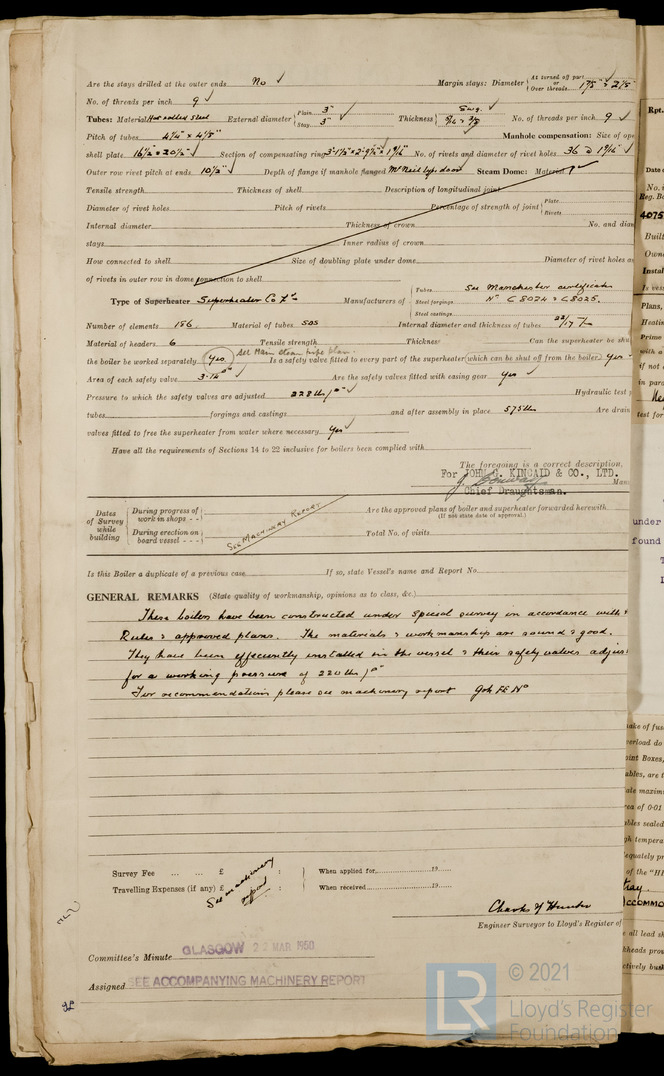 Are the stays drilled at the outer ends No ✓ Margin stays: Diameter { At turned off part or Over threads 1 7/8" & 2 1/8"
No. of threads per inch 9 ✓
Tubes: Material Hot rolled steel External diameter { Plain 3" Stay 3" ✓ Thickness { 8wg. 5/16 & 3/8 No. of threads per inch 9 ✓
Pitch of tubes 4 1/4" x 4 1/8" Manhole compensation: Size of ope
shell plate 16 1/2" x 20 1/2" ✓ Section of compensating ring No. of rivets and diameter of rivet holes 36 @ 1 9/16" ✓
Outer row rivet pitch at ends 10 1/2" ✓ Depth of flange if manhole flanged McNeil type door Steam Dome: Material
Tensile strength Thickness of shell Description of longitudinal joint
Diameter of rivet holes Pitch of rivets Percentage of strength of joint { Plate Rivets
Internal diameter Thickness of crown No. and diam
stays Inner radius of crown
How connected to shell Size of doubling plate under dome Diameter of rivet holes a
of rivets in outer row in dome connection to shell
Type of Superheater Superheater Co Ld Manufacturers of { Tubes Steel forgings Steel castings See Manchester certificates No C8024 & C8025.
Number of elements 156 Material of tubes SDS Internal diameter and thickness of tubes
Material of headers 6 Tensile strength Thickness Can the superheater be shut
the boiler be worked separately Yes See Main steam pipe plan. Is a safety valve fitted to every part of the superheater which can be shut off from the boiler Yes
Area of each safety valve 3.14 ▫" ✓ Are the safety valves fitted with easing gear Yes ✓
Pressure to which the safety valves are adjusted 228 lbs/▫" ✓ Hydraulic test p
tubes forgings and castings and after assembly in place 575 lbs Are drain
valves fitted to free the superheater from water where necessary Yes ✓
Have all the requirements of Sections 14 to 22 inclusive for boilers been complied with
The foregoing is a correct description,
For JOHN G. KINCAID & CO., LTD. Man
Chief Draughtsman.
Dates of Survey while building { During progress of work in shops - - During erection on board vessel - - - SEE MACHINERY REPORT
Are the approved plans of boiler and superheater forwarded herewith (If not state date of approval.)
Total No. of visits
Is this Boiler a duplicate of a previous case If so, state Vessel's name and Report No.
GENERAL REMARKS (State quality of workmanship, opinions as to class, &c.)
These boilers have been constructed under special survey in accordance with
Rules & approved plans. The materials & workmanship are sound & good.
They have been efficiently installed in the vessel & their safety valves adjus
for a working pressure of 220 lbs/▫"
For recommendation please see machinery report Gok FE No
Survey Fee ... ... £ : : When applied for, 19
Travelling Expenses (if any) £ : : When received 19
See machinery report
Charles J Hunter
Engineer Surveyor to Lloyd's Register of
Committee's Minute GLASGOW 22 MAR 1950
Assigned SEE ACCOMPANYING MACHINERY REPORT
Rpt.
Date o
No. i
Reg. Bo
4075
Built
Owne
Instal
Is vess
Plans,
Heatin
Prime
with a
if not
in para
test for
under
found
take of fus
overload do
int Boxes,
ables, are t
ate maximu
rea of 0·01
bles sealed
gh tempera
equately pr
of the "HI
tray.
ACCOMMO
e all lead sh
kheads prov
ctively bush
LR
© 2021
Lloyd's Register
Foundation